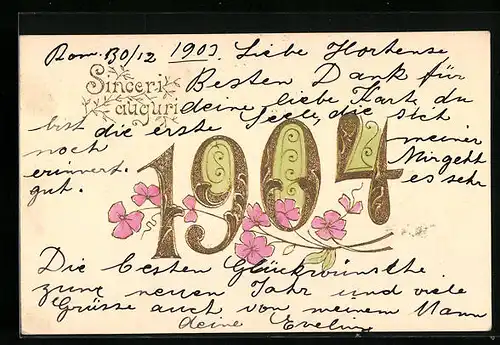 Rom. 30/12 1903. Liebe Hortense
Sinceri
auguri
Besten Dank für
deine liebe Karte, du
bist die erste Seele, die sich
noch meiner
erinnert. Mir geht
gut. es sehr
1904
Die besten Glückwünsche
zum neuen Jahr und viele
Grüsse auch von meinem Mann
deine Eveline